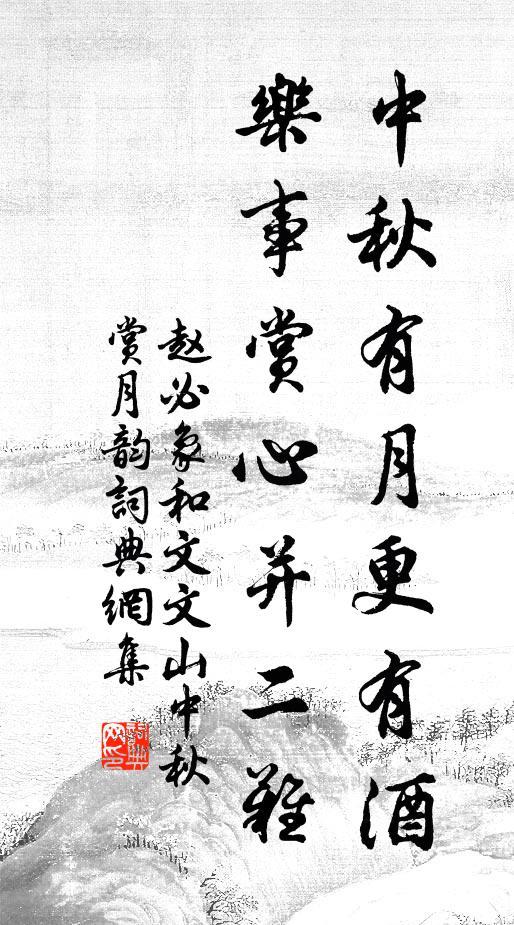 中秋有月更有酒
樂事賞心并二難
赵必象和文文山中秋
賞月韵詞典網集